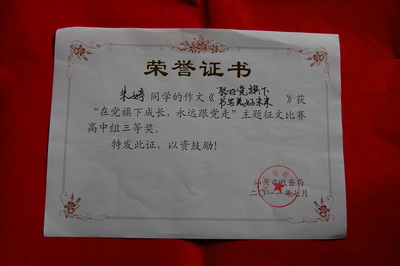 荣誉证书
朱婷 同学的作文《 党旗下
书写美好未来 》获
“在党旗下成长，永远跟党走”主题征文比赛
高中组三等奖。
特发此证，以资鼓励！
教育局
二〇一一年七月